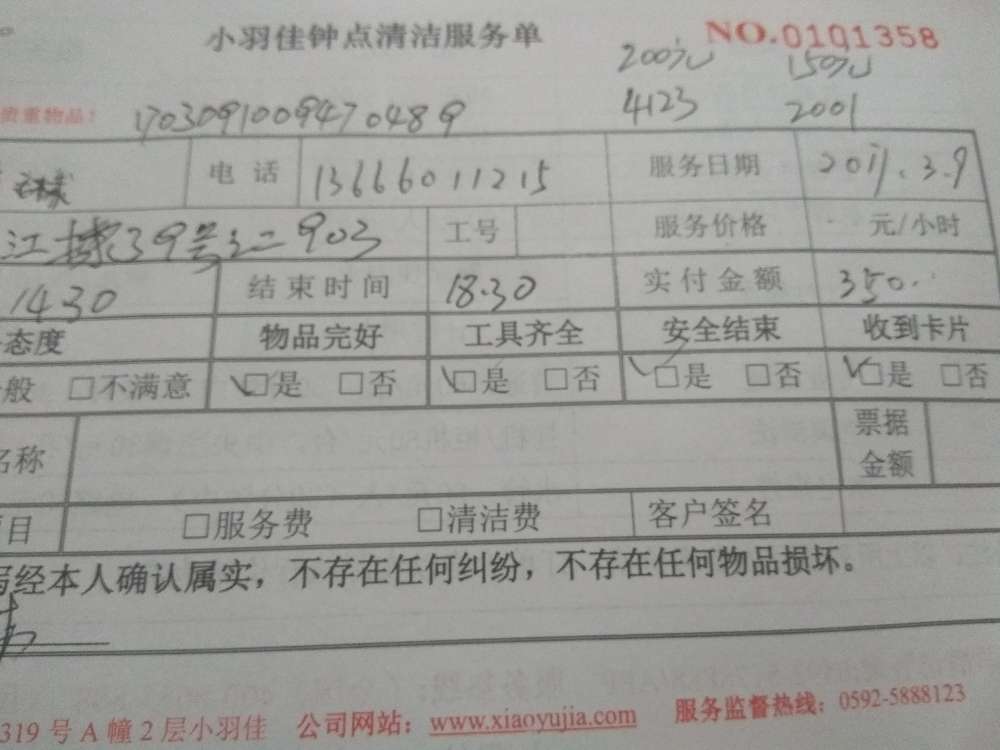 小羽佳钟点清洁服务单 NO.0101358
200元 150元
贵重物品! 170309100947 0489 4123 2001
电话 13666011215 服务日期 2017.3.9
江 39号之二903 工号 服务价格 元/小时
1430 结束时间 18.30 实付金额 350.
态度 物品完好 工具齐全 安全结束 收到卡片
般 □不满意 □是 □否 □是 □否 □是 □否 □是 □否
名称 票据金额
项目 □服务费 □清洁费 客户签名
写经本人确认属实，不存在任何纠纷，不存在任何物品损坏。
319号A幢2层小羽佳 公司网站：www.xiaoyujia.com 服务监督热线：0592-5888123